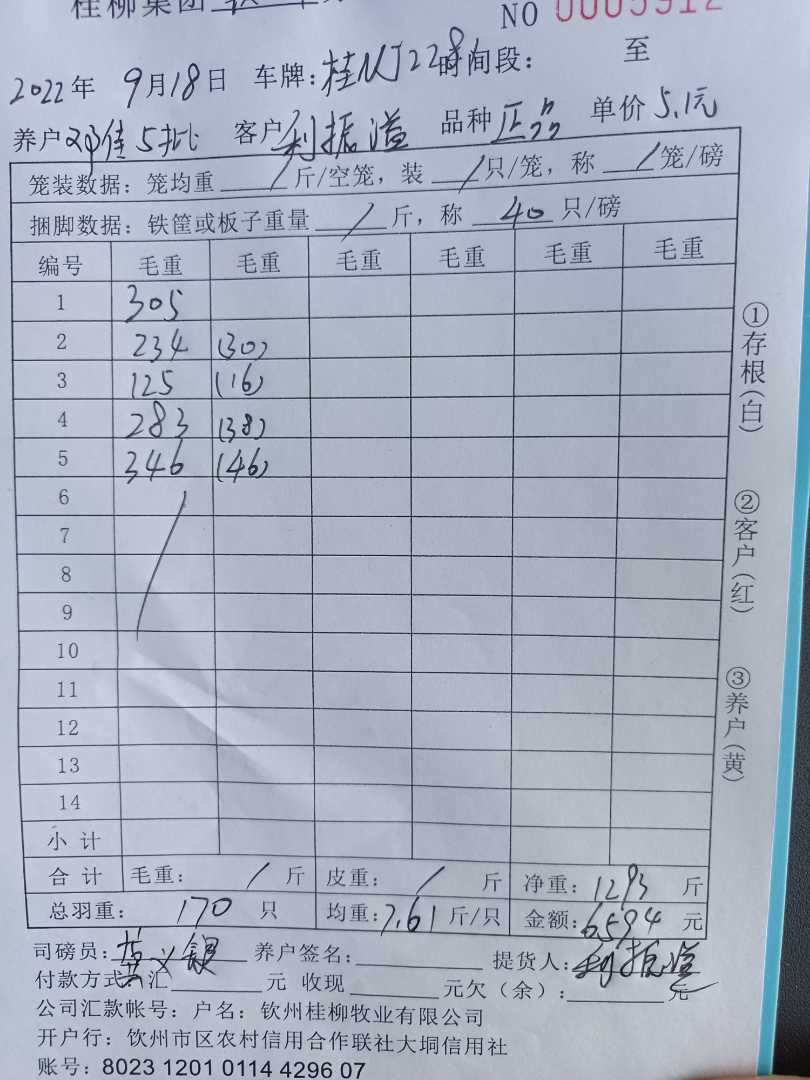 桂柳集团
NO 0005912
2022年 9月18日 车牌:桂NJ228 时间段: 至
养户 邓佳5批 客户 利振溢 品种 正品 单价 5.1元
笼装数据: 笼均重 / 斤/空笼, 装 / 只/笼, 称 / 笼/磅
捆脚数据: 铁筐或板子重量 / 斤, 称 40 只/磅
编号 毛重 毛重 毛重 毛重 毛重 毛重
1 305
2 234 (30)
3 125 (16)
4 283 (38)
5 346 (46)
6
7
8
9
10
11
12
13
14
小 计
合 计 毛重: / 斤 皮重: / 斤 净重: 1293 斤
总羽重: 170 只 均重: 7.61 斤/只 金额: 6594 元
司磅员: 黄义银 养户签名: 提货人: 利振溢
付款方式: 汇 元 收现 元欠(余): 元
公司汇款帐号: 户名: 钦州桂柳牧业有限公司
开户行: 钦州市区农村信用合作联社大垌信用社
账号: 8023 1201 0114 4296 07
①存根(白)
②客户(红)
③养户(黄)